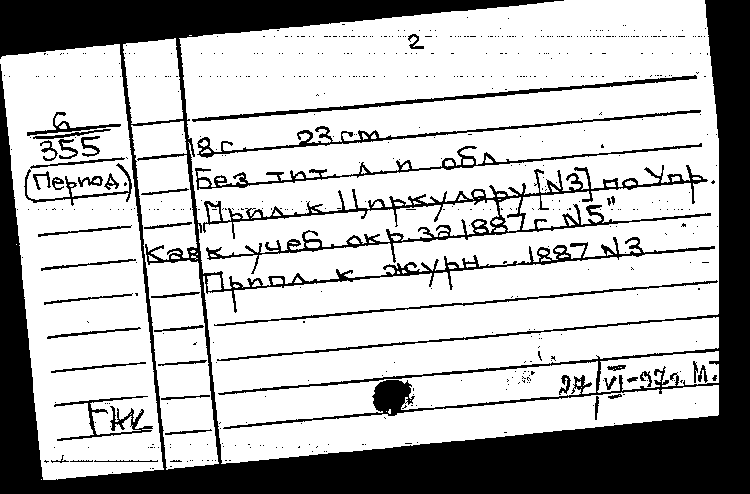 2
6
355
(Период.)
18 с. 23 см.
Без тит. л. и обл.
"Прил. к Циркуляру [N3] по Упр.
Кавк. учеб. окр. за 1887 г. N5."
Прил. к журн. ... 1887 N3
27/VI-97г.